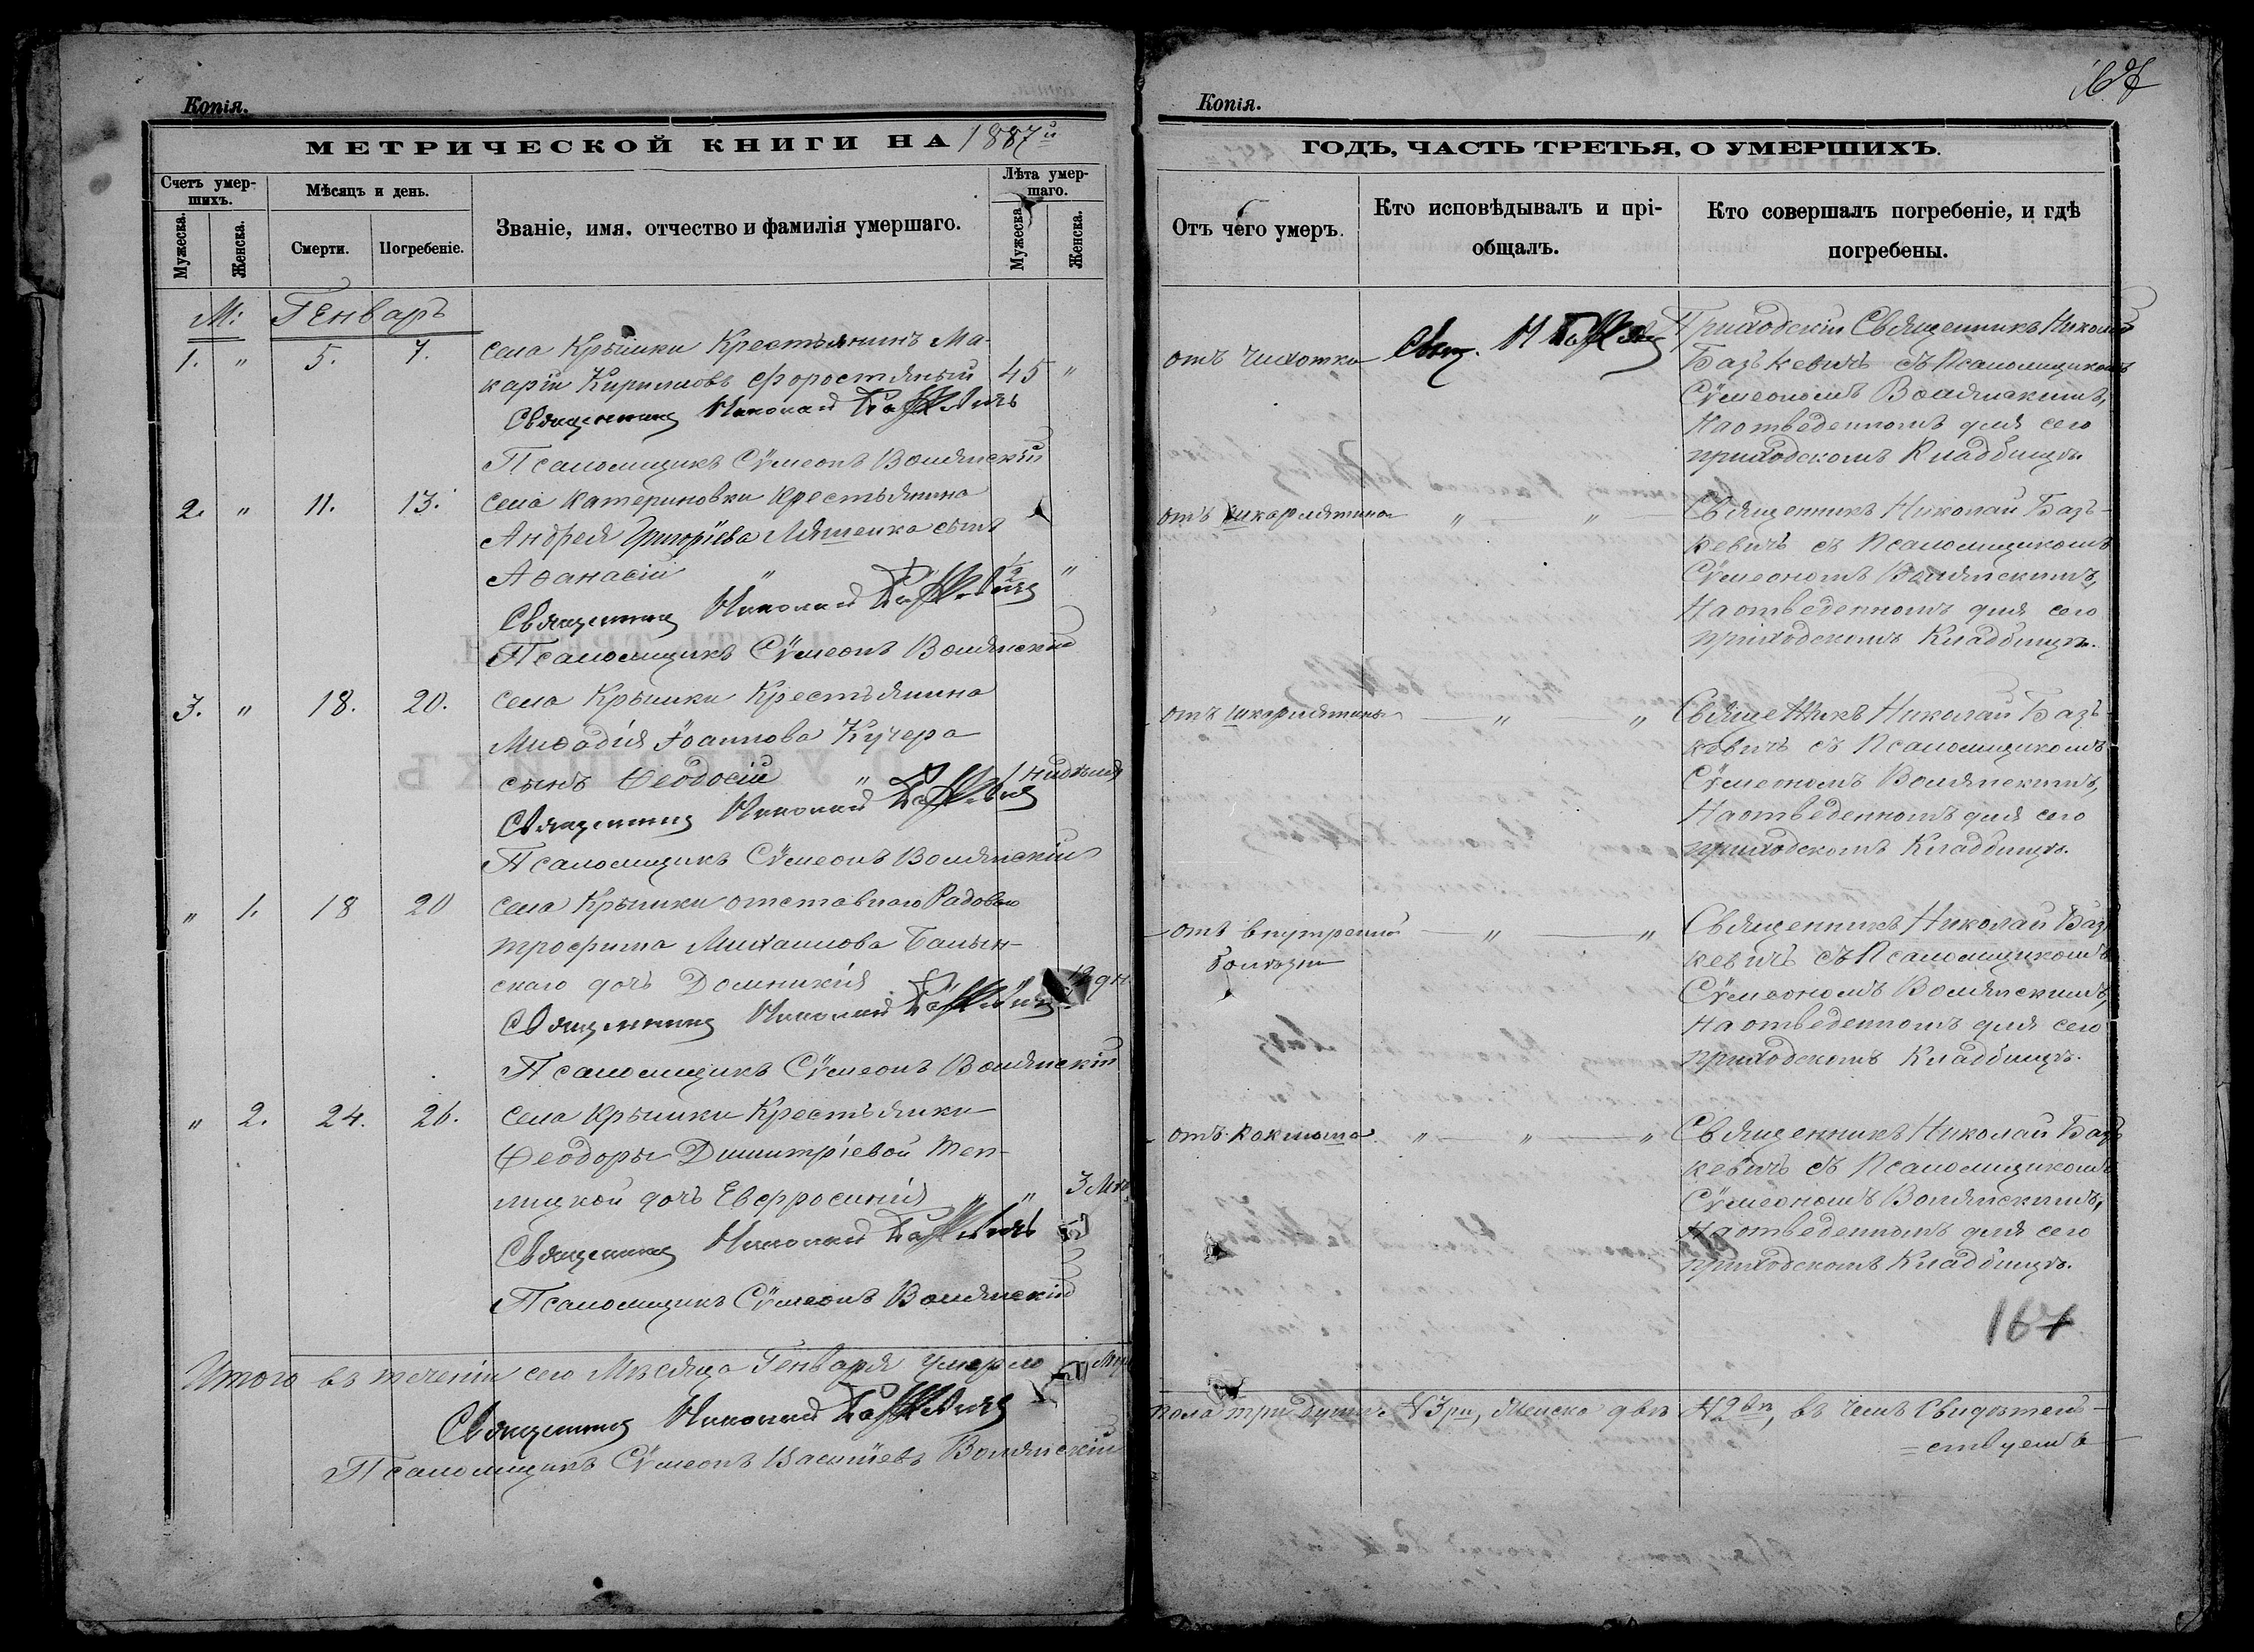 Копія.
МЕТРИЧЕСКОЙ КНИГИ НА 1887й
Счетъ умер-
шихъ.
Мѣсяцъ и день.
Званіе, имя, отчество и фамилія умершаго.
Лѣта умер-
шаго.
Мужеска.
Женска.
Смерти.
Погребеніе.
Мужеска.
Женска.
М: Генварь
1. " 5. 7. села Крымки Крестьянинъ Ма-
карій Кирилловъ Форостяный 45 "
Священникъ Николай Базькевичъ
Псаломщикъ Сѵмеонъ Волянскій
2. " 11. 13. села Катериновки Крестьянина
Андрея Григоріева Ляшенка сынъ
Аѳанасій " 1/2 "
Священникъ Николай Базькевичъ
Псаломщикъ Сѵмеонъ Волянскій
3. " 18. 20. села Крымки Крестьянина
Іоаннова Кучера
сынъ Ѳеодосій " 1
Священникъ Николай Базькевичъ
Псаломщикъ Сѵмеонъ Волянскій
" 1. 18 20 села Крымки отставнаго Рядоваго
Трофима Михаилова
скаго дочь Домникія " 12 дн
Священникъ Николай Базькевичъ
Псаломщикъ Сѵмеонъ Волянскій
" 2. 24. 26. села Крымки Крестьянки
Ѳеодоры Димитріевой Теп-
лицкой дочь Евфросинія " " 3
Священникъ Николай Базькевичъ
Псаломщикъ Сѵмеонъ Волянскій
Итого въ теченіи сего Мѣсяца Генваря умерло
Священникъ Николай Базькевичъ
Псаломщикъ Сѵмеонъ Волянскій
Копія.
ГОДЪ, ЧАСТЬ ТРЕТЬЯ, О УМЕРШИХЪ.
Отъ чего умеръ.
Кто исповѣдывалъ и прі-
общалъ.
Кто совершалъ погребеніе, и гдѣ
погребены.
отъ чихотки Свящ. Н Базькевичъ Приходскій Священникъ Николай
Базькевичъ съ Псаломщикомъ
Сѵмеономъ Волянскимъ,
На отведенномъ для сего
приходскомъ Кладбищѣ.
отъ шкарлятина " " Священникъ Николай Базь-
кевичъ съ Псаломщикомъ
Сѵмеономъ Волянскимъ,
На отведенномъ для сего
приходскомъ Кладбищѣ.
отъ шкарлятина " " Священникъ Николай Базь-
кевичъ съ Псаломщикомъ
Сѵмеономъ Волянскимъ,
На отведенномъ для сего
приходскомъ Кладбищѣ.
отъ внутреней " " Священникъ Николай Базь-
болѣзни кевичъ съ Псаломщикомъ
Сѵмеономъ Волянскимъ,
На отведенномъ для сего
приходскомъ Кладбищѣ.
отъ коклюша " " " Священникъ Николай Базь-
кевичъ съ Псаломщикомъ
Сѵмеономъ Волянскимъ,
На отведенномъ для сего
приходскомъ Кладбищѣ.
167
пола три души № 3ри, Женска двѣ № 2вѣ, въ чемъ свидѣтель-
=ствуемъ